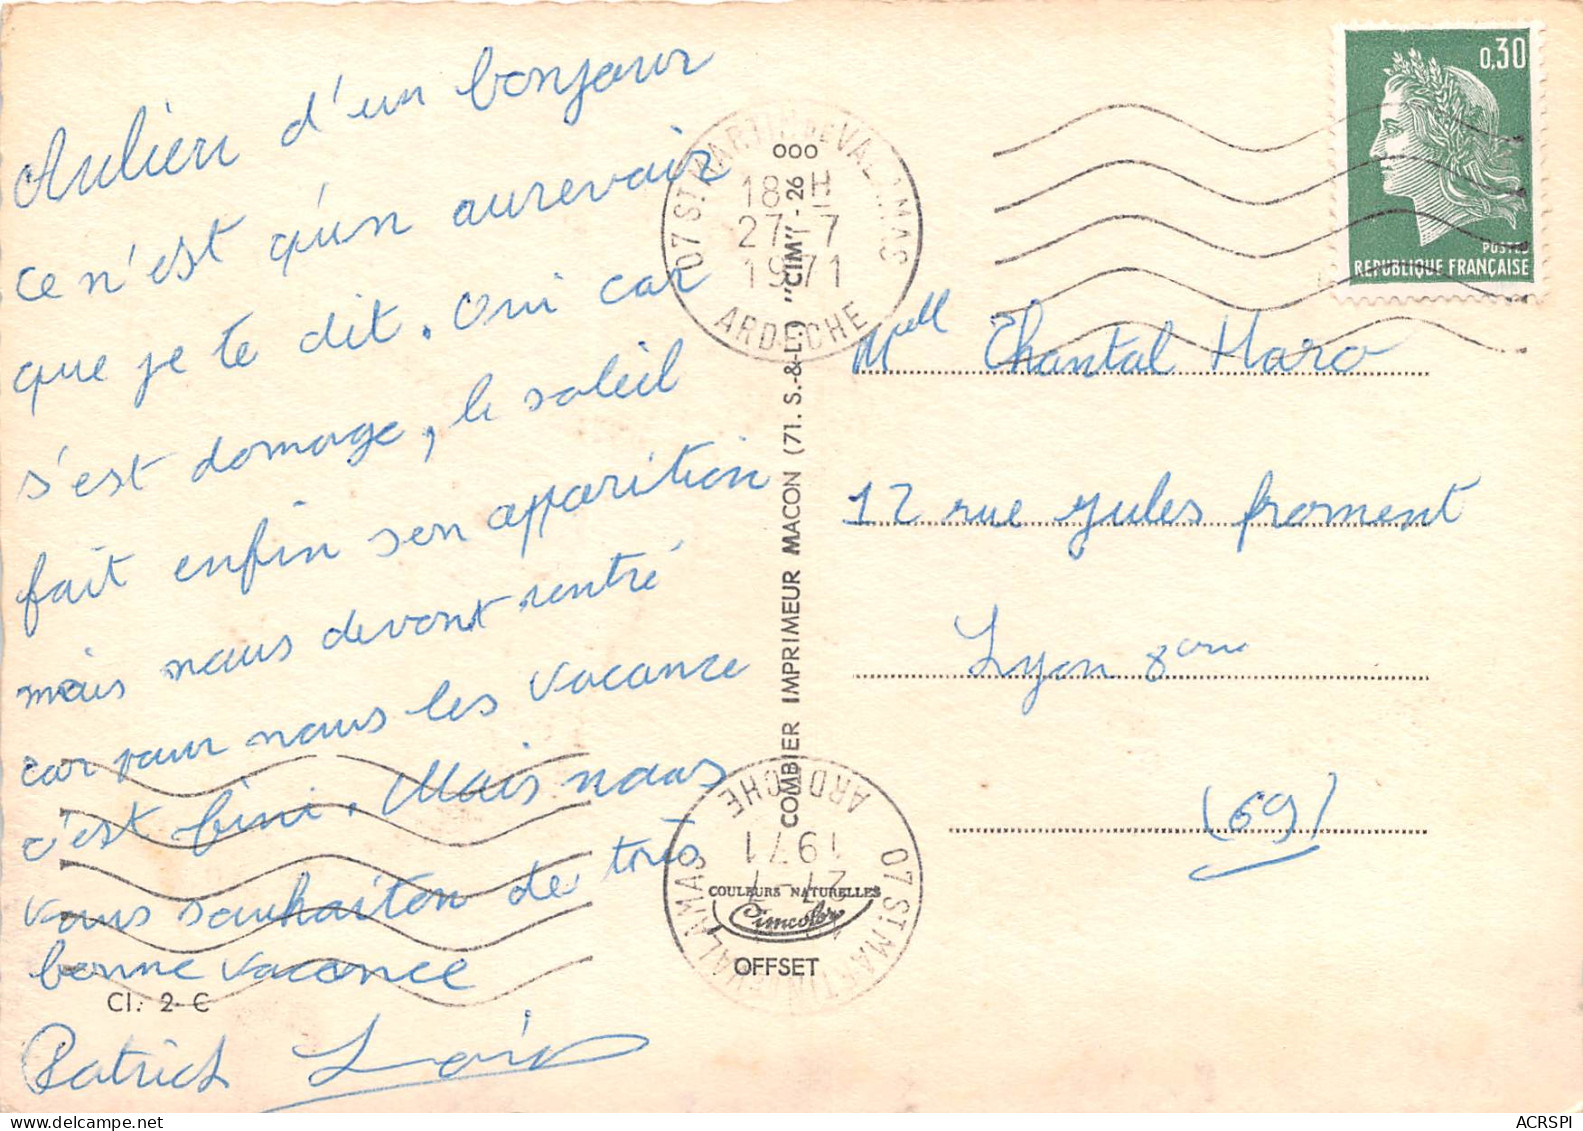 Aulieu d'un bonjour
ce n'est qu'un aurevoir
que je te dit. Oui car
s'est domage, le soleil
fait enfin son apparition
mais nous devont rentré
car pour nous les vacance
c'est fini. Mais nous
vous souhaiton de très
bonne vacance
Cl. 2-C
Patrick Loïs
07 ST MARTIN DE VALAMAS
18 H
27-7
1971
ARDECHE
COMBIER IMPRIMEUR MACON (71. S.-&-L.) "CIM" - 26
ooo
07 ST MARTIN DE VALAMAS
27-7
1971
ARDECHE
COULEURS NATURELLES
Cimcolor
OFFSET
0,30
POSTES
REPUBLIQUE FRANÇAISE
Mell Chantal Haro
12 rue Jules froment
Lyon 8eme
(69)
ACRSPI